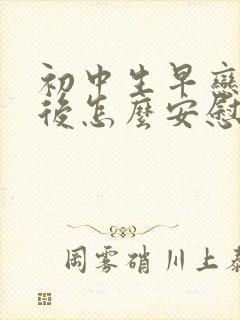 初中生早戀
後怎麼安慰
周雾硝川上